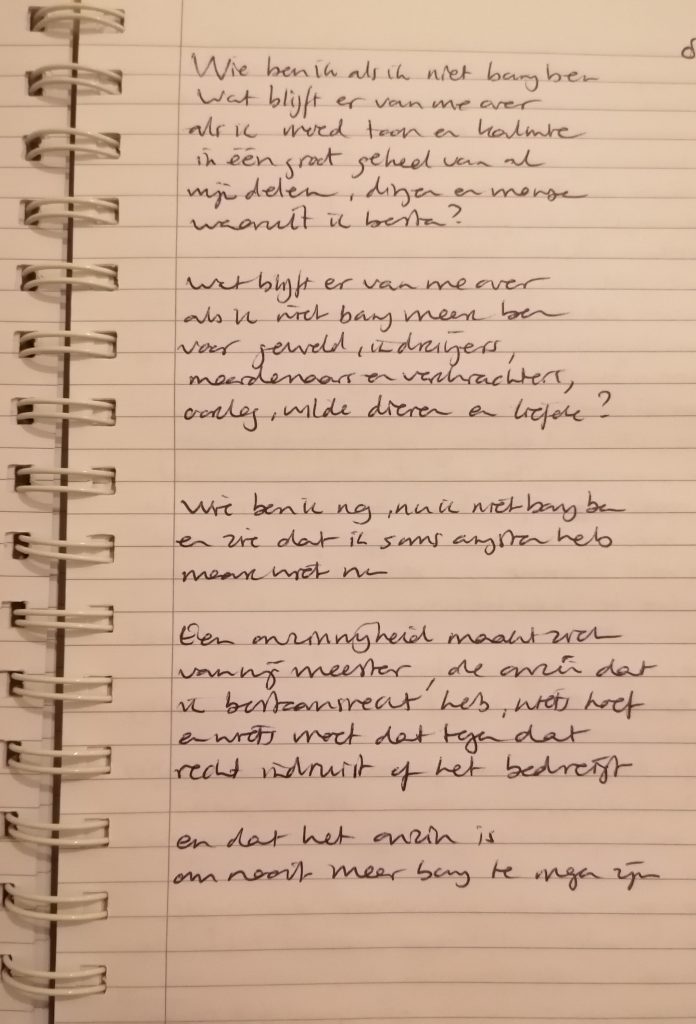 Wie ben ik als ik niet bang ben
wat blijft er van me over
als ik moed toon en kalmte
in één groot geheel van al
mijn delen, dingen en mensen
waaruit ik besta?
wat blijft er van me over
als ik niet bang meer ben
voor geweld, indringers,
moordenaars en verkrachters,
oorlog, wilde dieren en liefde?
Wie ben ik nog, nu ik niet bang ben
en zie dat ik soms angsten heb
maar niet nu
Een onzinnigheid maakt zich
van mij meester, de onzin dat
ik bestaansrecht heb, niets hoef
en niets moet dat tegen dat
recht indruist of het bedreigt
en dat het onzin is
om nooit meer bang te mogen zijn